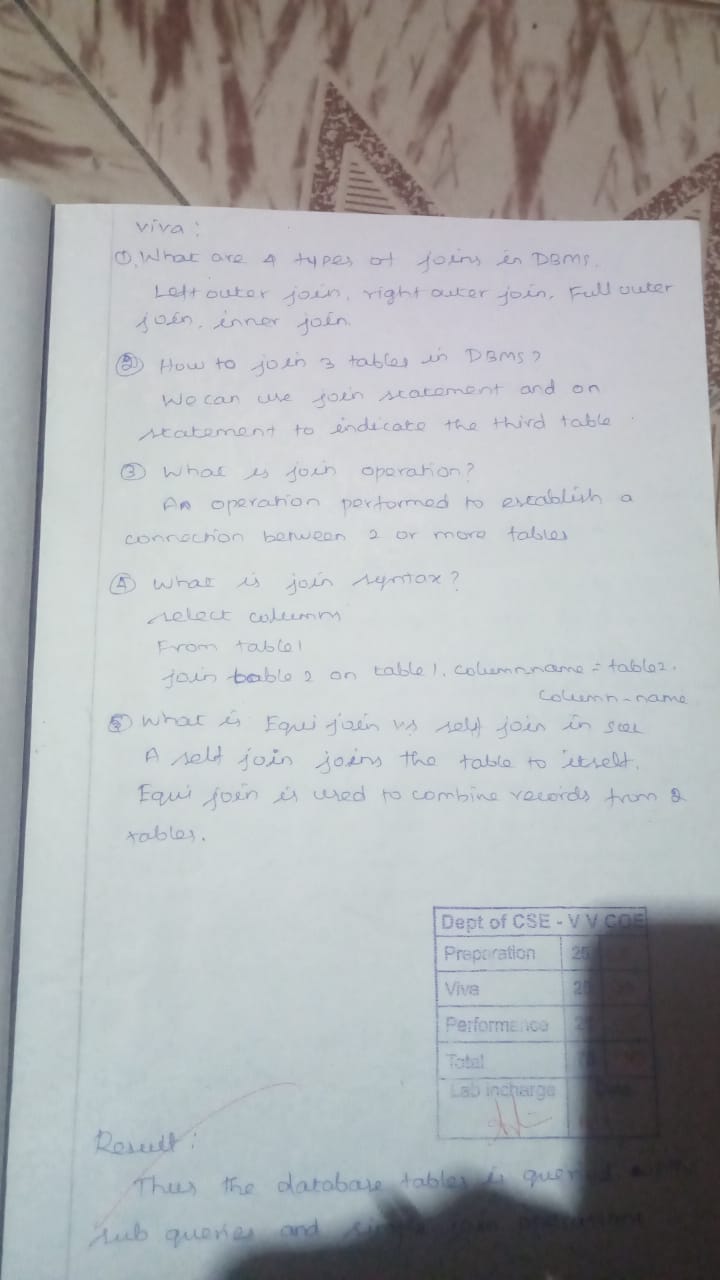 viva :
①. What are 4 types of joins in DBMS.
Left outer join, right outer join, Full outer
join, inner join.
② How to join 3 tables in DBMS?
We can use join statement and on
statement to indicate the third table
③ What is join operation?
An operation performed to establish a
connection between 2 or more tables
④ What is join syntax?
select columns
From table1
join table 2 on table 1. columnname = table2.
column-name
⑤ What is Equi join vs self join in
A self join joins the table to itself.
Equi join is used to combine records from 2
tables.
Dept of CSE - V V COE
Preparation 25
Viva 25
Performance
Total
Lab incharge
Result :
Thus the database tables is queried
sub queries and simple join operations